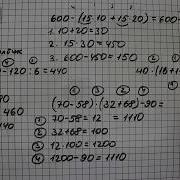 600-(15·10+15·20)=600-
1. 10+20=30
2. 15·30=450
3. 600-450=150
-120:6=440
40·(18+
460
440
(70-58)·(32+68)-90=
① 70-58=12 =1110
② 32+68=100
③ 12·100=1200
④ 1200-90=1110